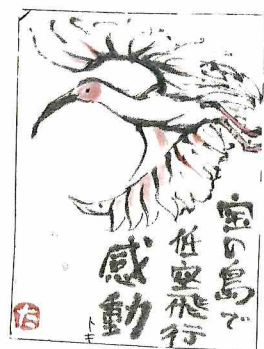 宝の島で
低空飛行
感動
トキ